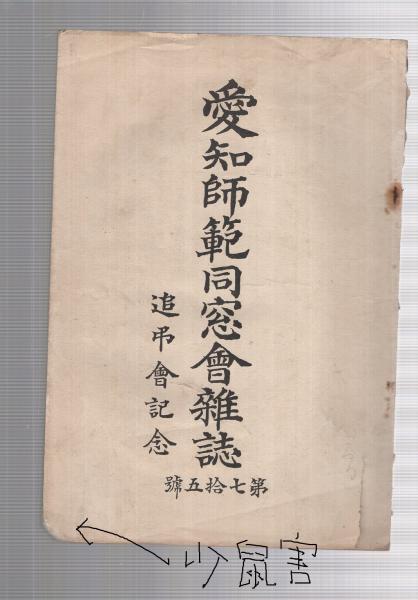 愛知師範同窓會雜誌
追弔會記念
第七拾五號
少鼠害